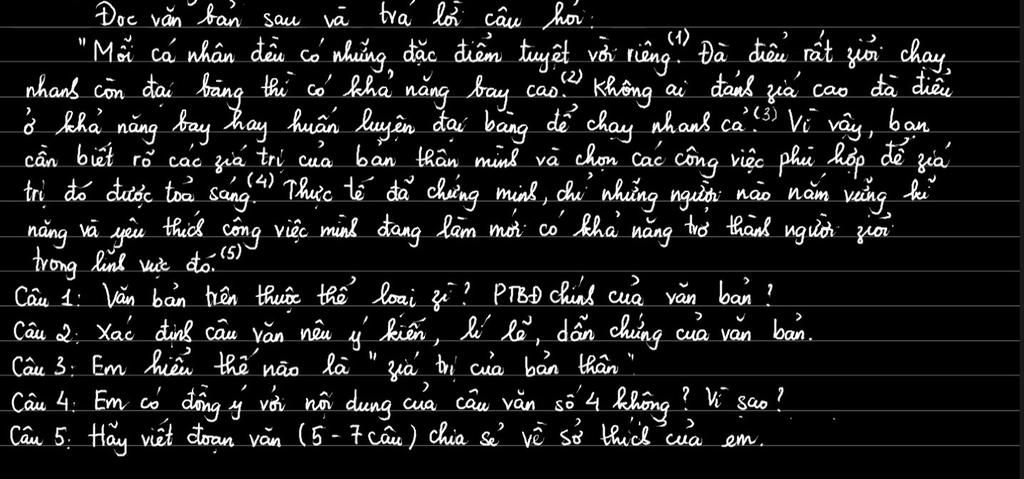 Đọc văn bản sau và trả lời câu hỏi:
"Mỗi cá nhân đều có những đặc điểm tuyệt vời riêng.(1) Đà điểu rất giỏi chạy
nhanh còn đại bàng thì có khả năng bay cao.(2) Không ai đánh giá cao đà điểu
ở khả năng bay hay huấn luyện đại bàng để chạy nhanh cả.(3) Vì vậy, bạn
cần biết rõ các giá trị của bản thân mình và chọn các công việc phù hợp để giá
trị đó được toả sáng.(4) Thực tế đã chứng minh, chỉ những người nào nắm vững kĩ
năng và yêu thích công việc mình đang làm mới có khả năng trở thành người giỏi
trong lĩnh vực đó.(5)
Câu 1: Văn bản trên thuộc thể loại gì? PTBĐ chính của văn bản?
Câu 2: Xác định câu văn nêu ý kiến, lí lẽ, dẫn chứng của văn bản.
Câu 3: Em hiểu thế nào là "giá trị của bản thân"
Câu 4: Em có đồng ý với nội dung của câu văn số 4 không? Vì sao?
Câu 5: Hãy viết đoạn văn (5 - 7 câu) chia sẻ về sở thích của em.